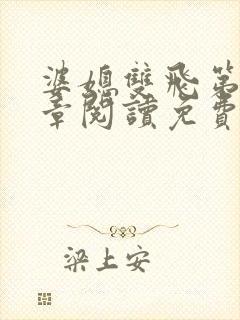 婆媳雙飛第
章閱讀免費
梁上安